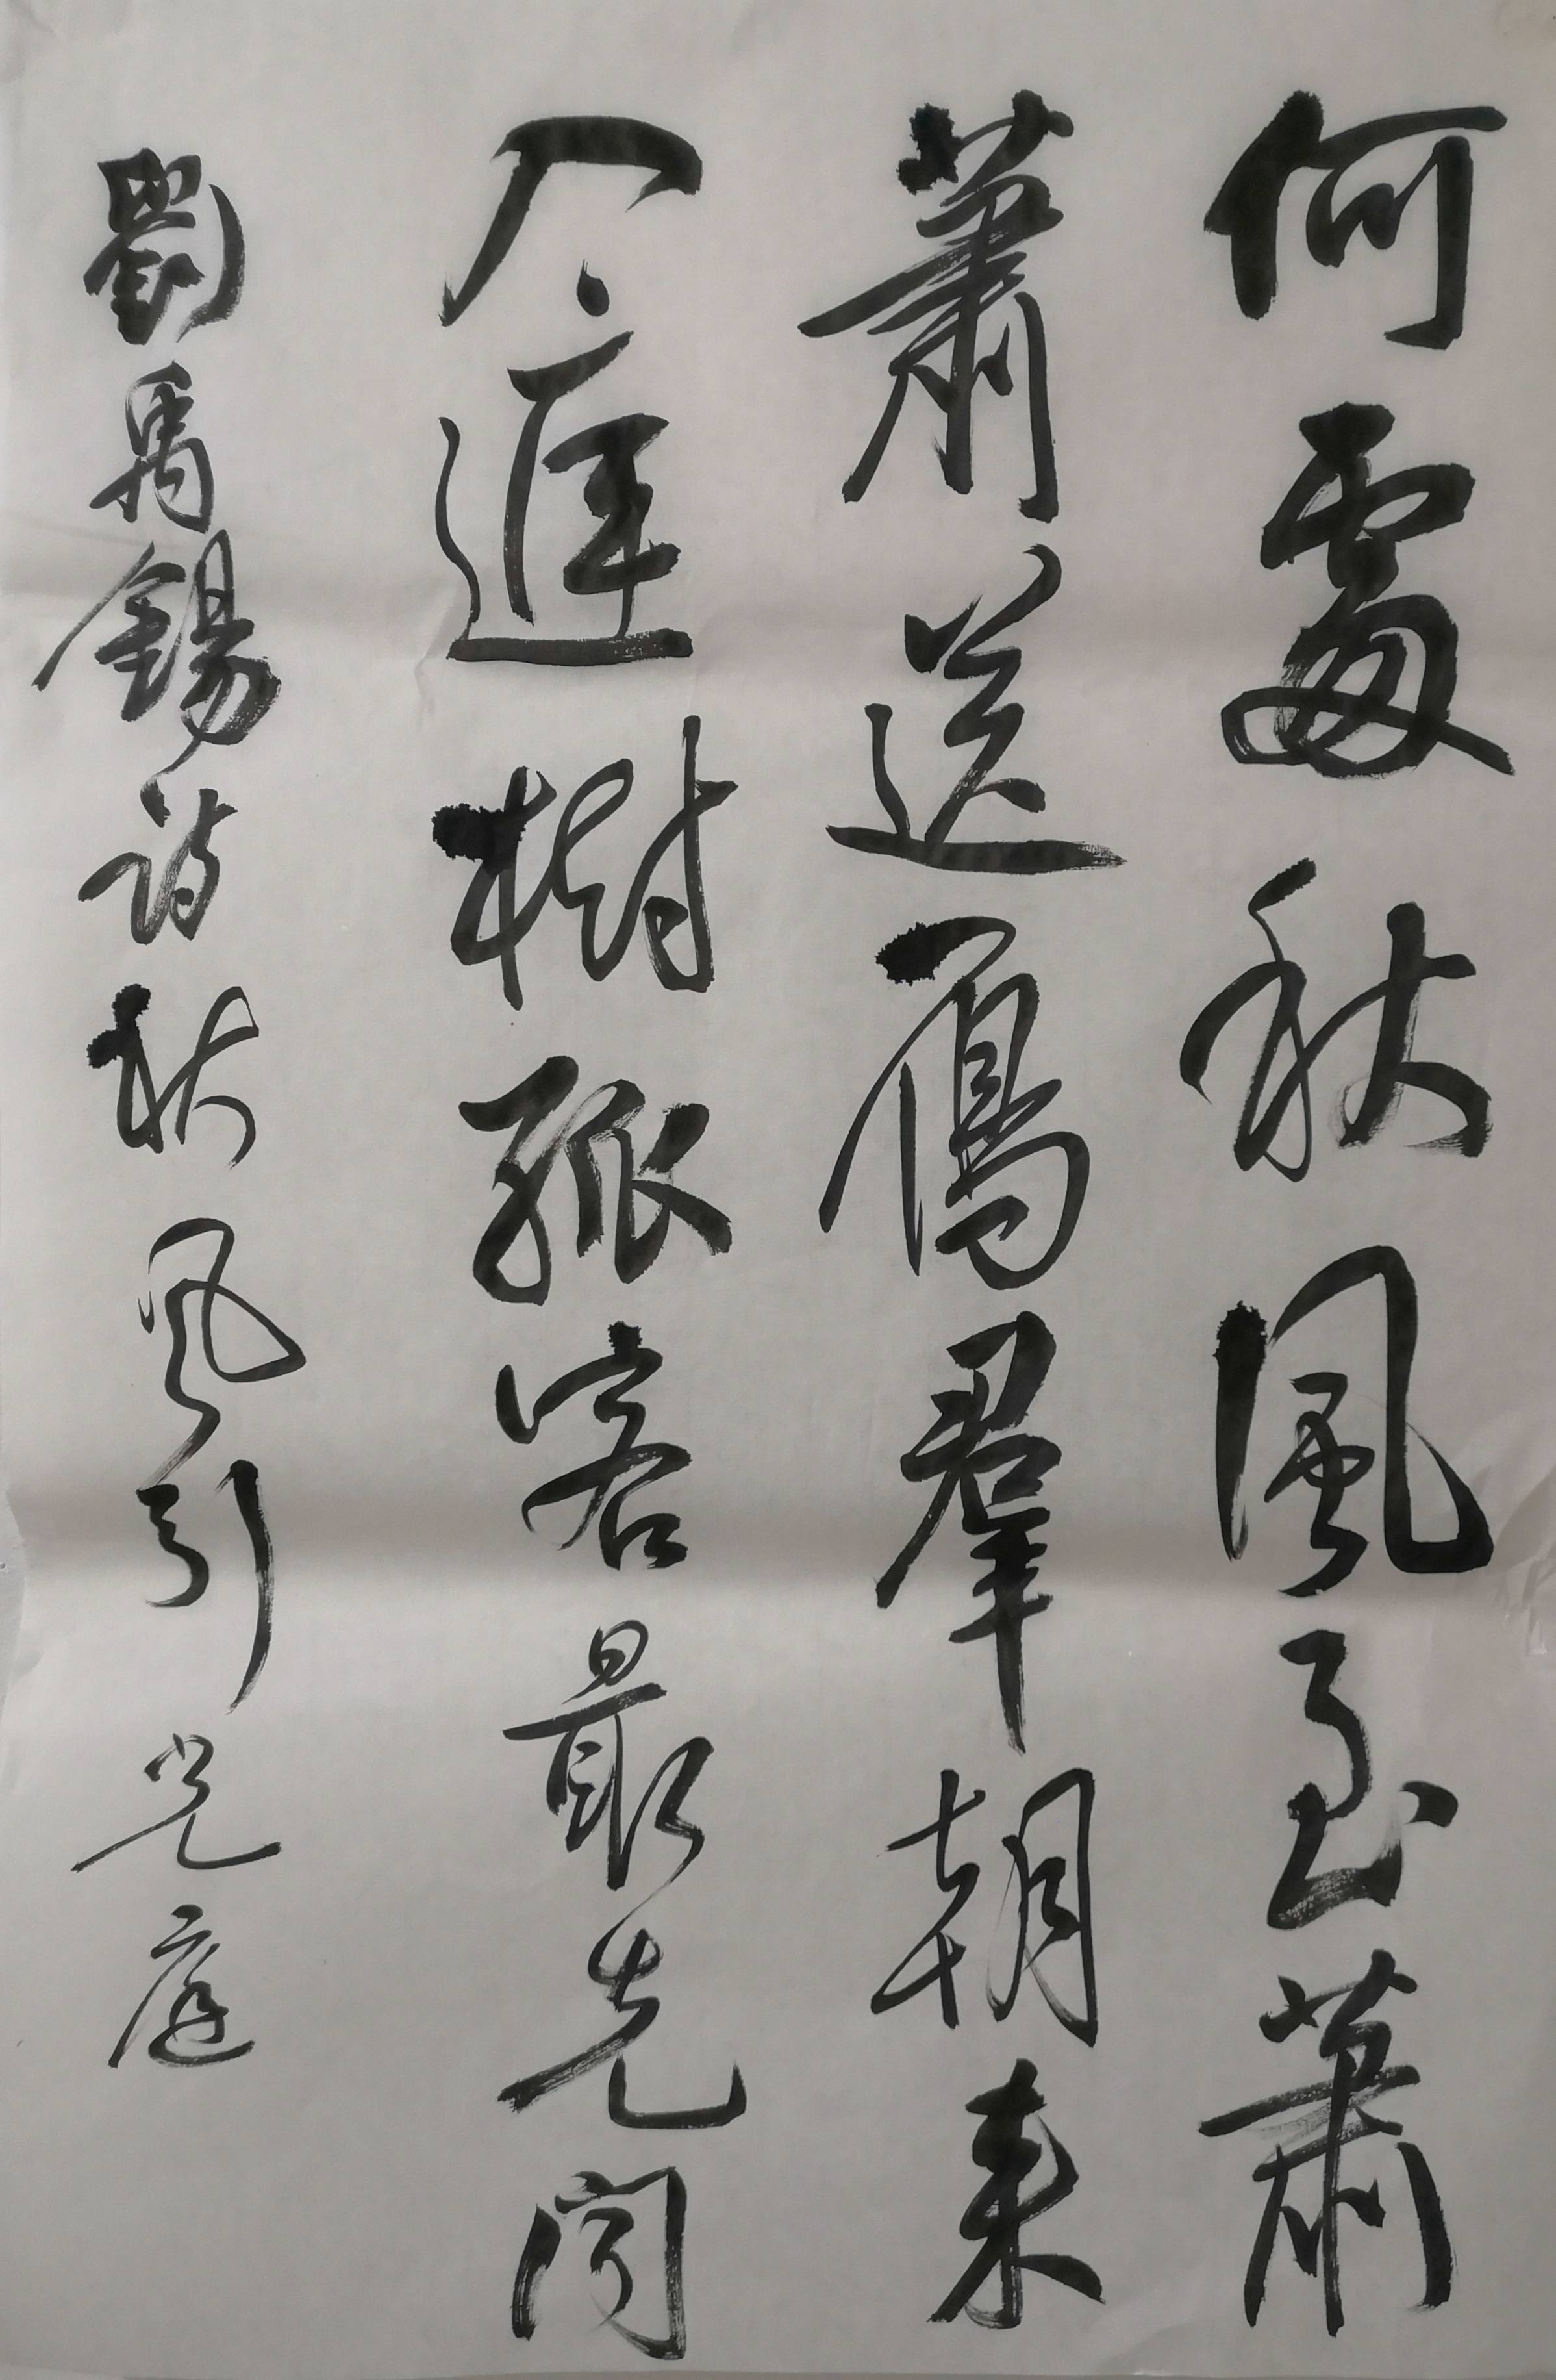 何處秋風至蕭
蕭送鴈羣朝来
入庭樹孤客最先聞
劉禹錫詩秋風引光庭